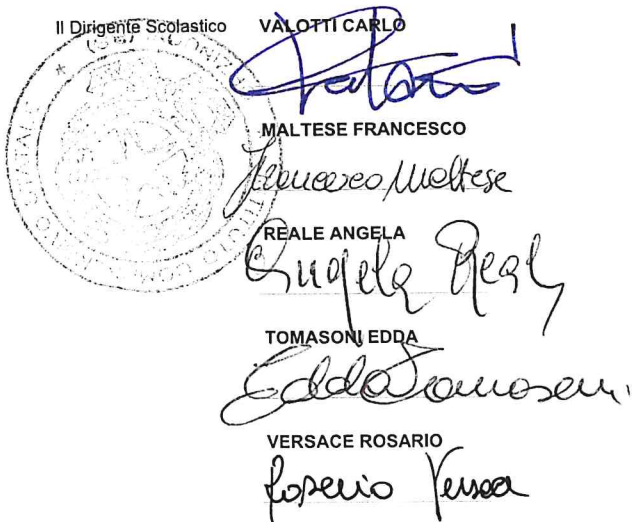 Il Dirigente Scolastico VALOTTI CARLO
Valotti
MALTESE FRANCESCO
Francesco Maltese
REALE ANGELA
Angela Reale
TOMASONI EDDA
Edda Tomasoni
VERSACE ROSARIO
Rosario Versace
ISTITUTO COMPRENSIVO STATALE